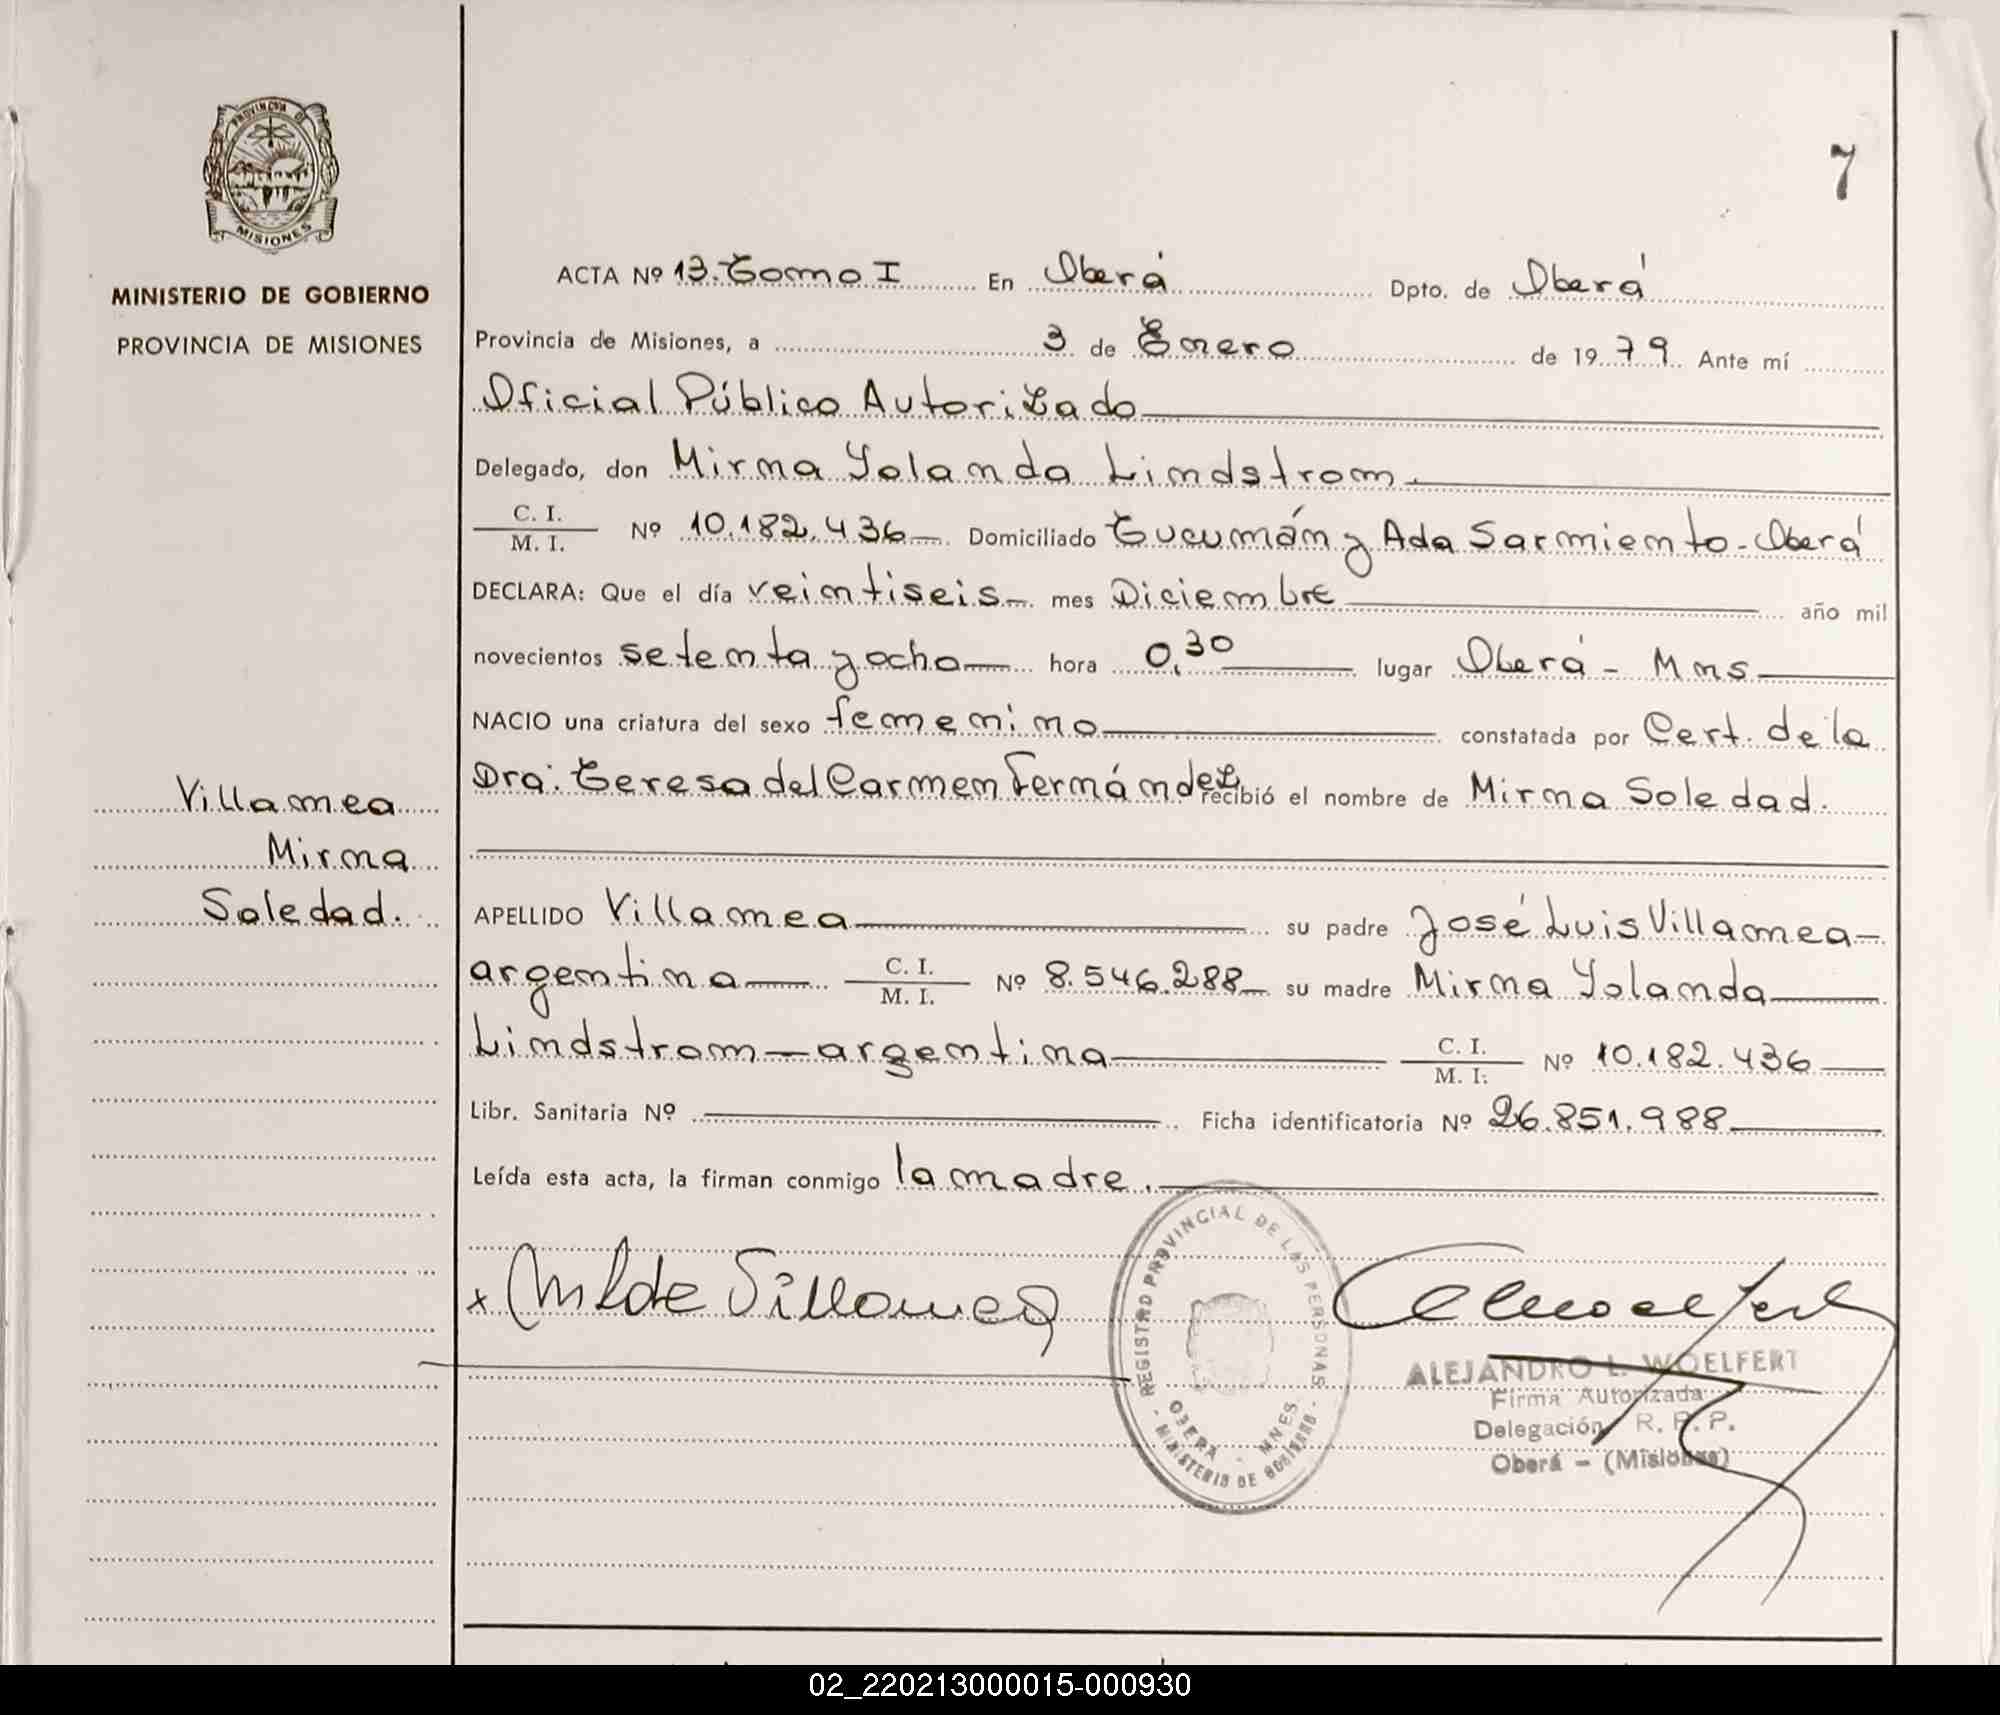 PROVINCIA DE
MISIONES
MINISTERIO DE GOBIERNO
PROVINCIA DE MISIONES
Villamea
Mirna
Soledad.
7
ACTA Nº 13. Tomo I En Oberá Dpto. de Oberá
Provincia de Misiones, a 3 de Enero de 1979 Ante mí
Oficial Público Autorizado
Delegado, don Mirna Yolanda Lindstrom.
C. I.
M. I. Nº 10.182.436 Domiciliado Tucumán y Ada Sarmiento - Oberá
DECLARA: Que el día veintiseis mes Diciembre año mil
novecientos setenta y ocho hora 0,30 lugar Oberá - Mns
NACIO una criatura del sexo femenino constatada por Cert. de la
Dra. Teresa del Carmen Fernández recibió el nombre de Mirna Soledad.
APELLIDO Villamea su padre José Luis Villamea -
argentina C. I.
M. I. Nº 8.546.288 su madre Mirna Yolanda
Lindstrom - argentina C. I.
M. I. Nº 10.182.436
Libr. Sanitaria Nº Ficha identificatoria Nº 26.851.988
Leída esta acta, la firman conmigo la madre.
x M L de Villamea
REGISTRO PROVINCIAL DE LAS PERSONAS
OBERA - MNES
- MINISTERIO DE GOBIERNO -
ALEJANDRO L. WOELFERT
Firma Autorizada
Delegación R. P. P.
Oberá - (Misiones)
02_220213000015-000930